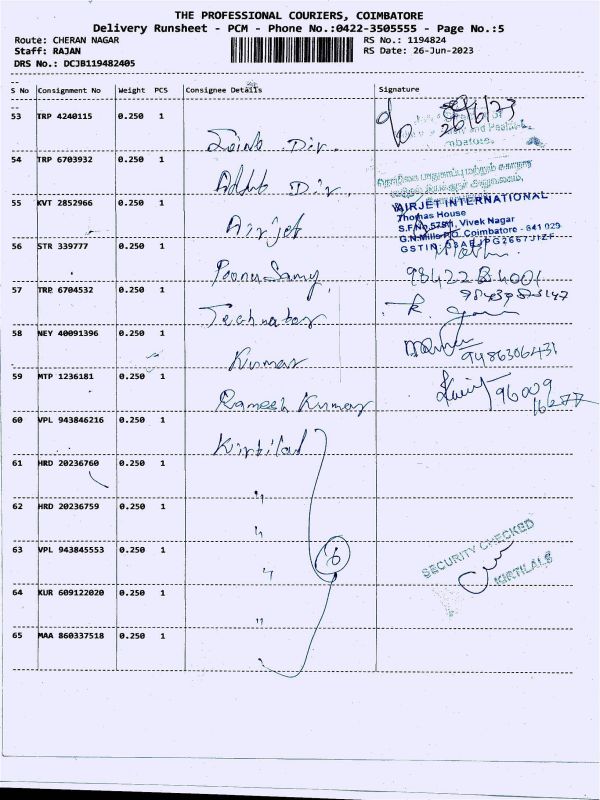 THE PROFESSIONAL COURIERS, COIMBATORE
Delivery Runsheet - PCM - Phone No.:0422-3505555 - Page No.:5
Route: CHERAN NAGAR RS No.: 1194824
Staff: RAJAN RS Date: 26-Jun-2023
DRS No.: DCJB119482405
S No Consignment No Weight PCS Consignee Details Signature
53 TRP 4240115 0.250 1 Joint Dir. 26/6/23
54 TRP 6703932 0.250 1 Addnl Dir.
55 KVT 2852966 0.250 1 Airjet
AIRJET INTERNATIONAL
Thomas House
Vivek Nagar
G.N.Mills P.O. Coimbatore - 641 029
56 STR 339777 0.250 1 PonnuSamy
57 TRP 6704532 0.250 1 Technator
58 NEY 40091396 0.250 1 Kumar 9486306431
59 MTP 1236181 0.250 1 Ramesh Kumar 96009
16677
60 VPL 943846216 0.250 1 Kirtilal
61 HRD 20236760 0.250 1 "
62 HRD 20236759 0.250 1 "
63 VPL 943845553 0.250 1 " 6
SECURITY CHECKED
KIRTILALS
64 KUR 609122020 0.250 1 "
65 MAA 860337518 0.250 1 "